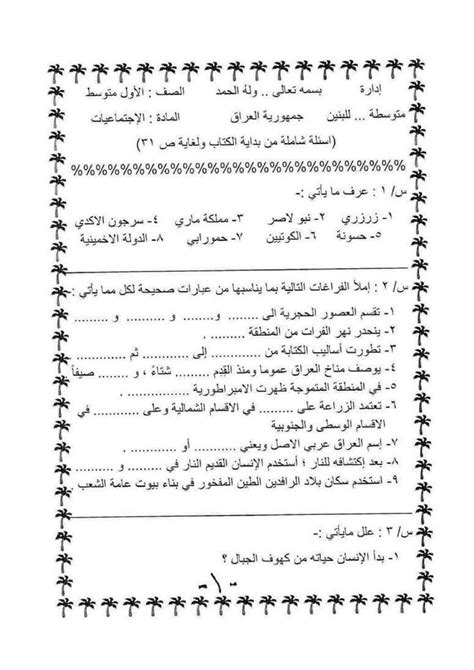 إدارة بسمه تعالى .. وله الحمد الصف : الأول متوسط
متوسطة ... للبنين جمهورية العراق المادة : الإجتماعيات
(اسئلة شاملة من بداية الكتاب ولغاية ص ٣١)
%%%%%%%%%%%%%%%%%%%%%%%%%%%
س/ ١ : عرف ما يأتي :-
١- زرزري ٢- نبو لاصر ٣- مملكة ماري ٤- سرجون الاكدي
٥- حسونة ٦- الكوتيين ٧- حمورابي ٨- الدولة الاخمينية
س/ ٢ : إملأ الفراغات التالية بما يناسبها من عبارات صحيحة لكل مما يأتي :-
١- تقسم العصور الحجرية الى ........ و........ و .......... و .........
٢- ينحدر نهر الفرات من المنطقة .......... .
٣- تطورت أساليب الكتابة من ........... إلى ............ ثم ............. .
٤- يوصف مناخ العراق عموما ومنذ القِدم ......... شتاءً ، و ......... صيفاً
٥- في المنطقة المتموجة ظهرت الامبراطورية ................ .
٦- تعتمد الزراعة على .......... في الاقسام الشمالية وعلى ............ في
الاقسام الوسطى والجنوبية
٧- إسم العراق عربي الاصل ويعني .......... أو ............ .
٨- بعد إكتشافه للنار ؛ أستخدم الإنسان القديم النار في ......... و ..........
٩- استخدم سكان بلاد الرافدين الطين المفخور في بناء بيوت عامة الشعب .
س/ ٣ : علل مايأتي :-
١- بدأ الإنسان حياته من كهوف الجبال ؟
-١-